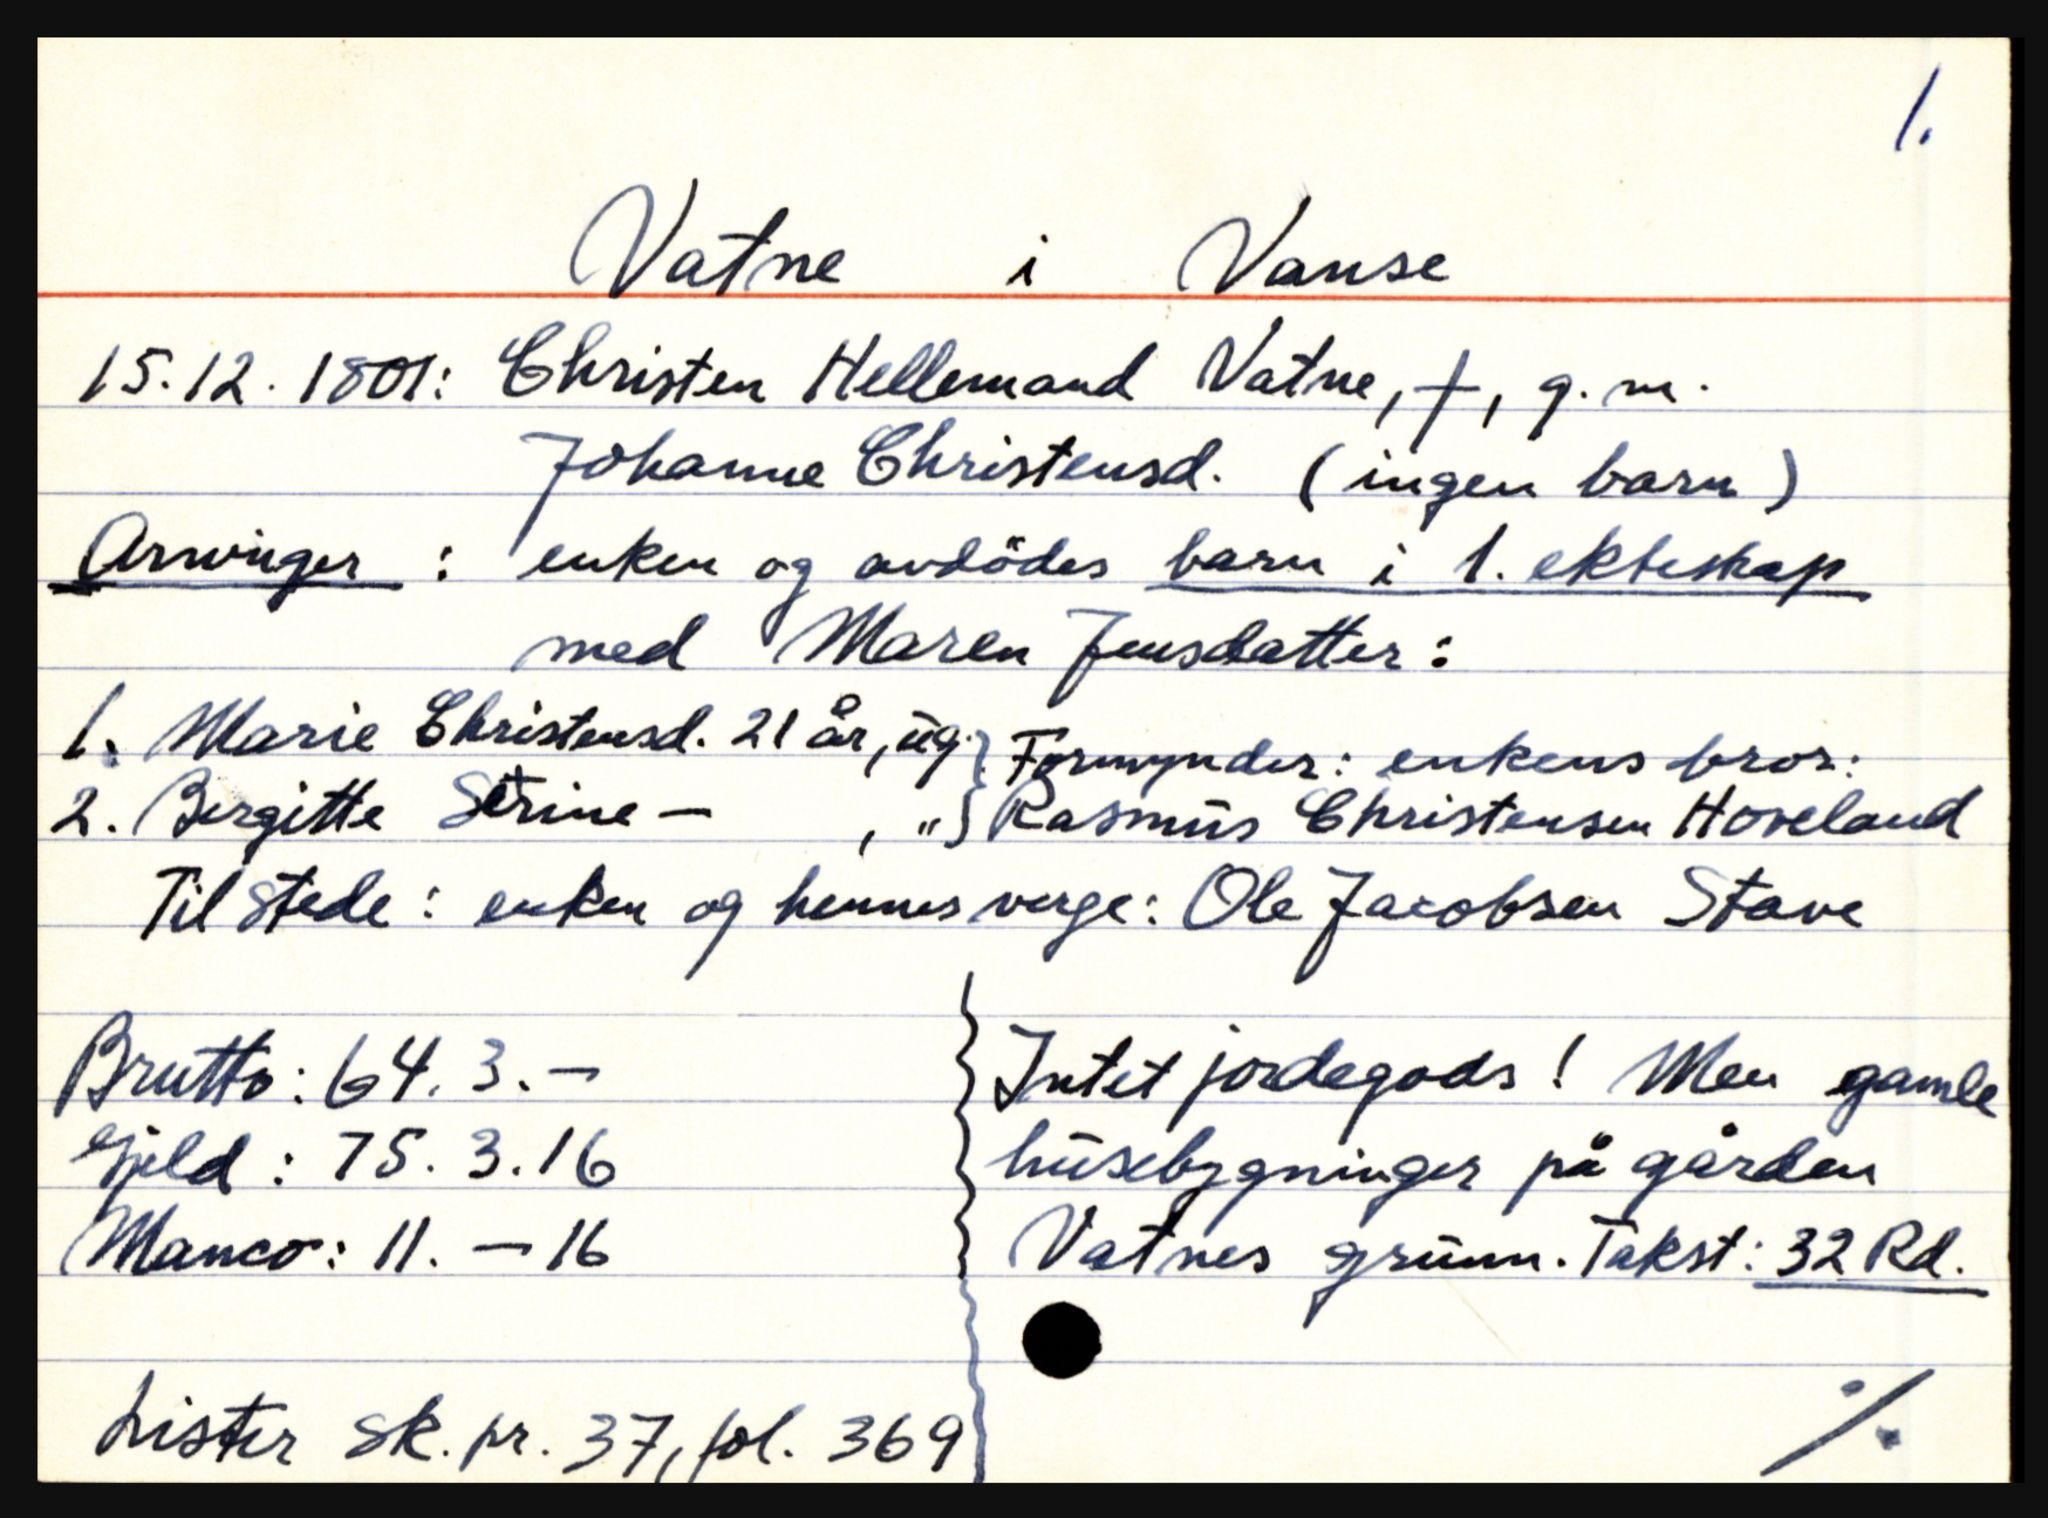 1.
Vatne i Vanse
15.12.1801: Christen Hellemand Vatne, †, g.m.
Johanne Christensd. (ingen barn)
Arvinger : enken og avdödes barn i 1. ekteskap
med Maren Jensdatter:
1. Marie Christensd. 21 år, ug. } Formynder: enkens bror:
2. Bergitte Serine — , " } Rasmus Christensen Hoveland
Til stede: enken og hennes verge: Ole Jacobsen Stave
Brutto: 64. 3. –
Gjeld : 75. 3. 16
Manco: 11. – 16
Intet jordegods! Men gamle
husebygninger på gården
Vatnes grunn. Takst: 32 Rd.
Lister sk. pr. 37, fol. 369
./.